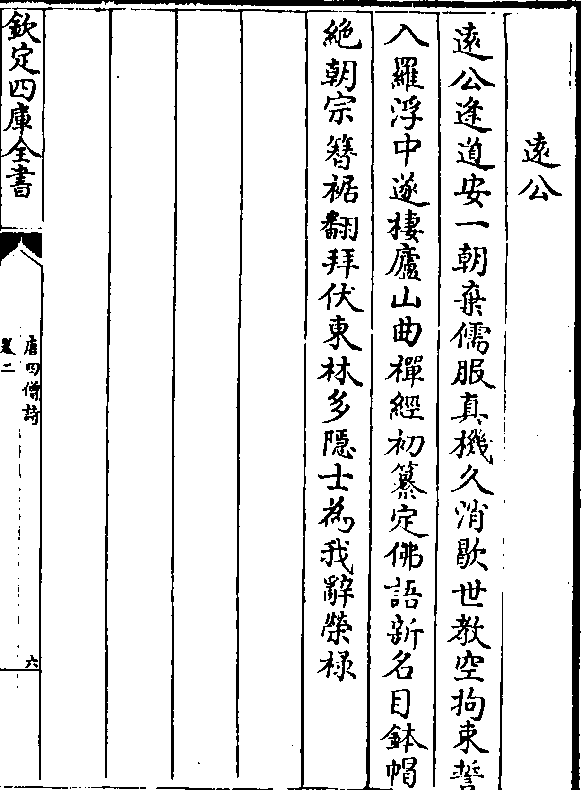 遠公
遠公逢道安一朝棄儒服真機久消歇世教空拘束誓
入羅浮中遂棲廬山曲禪經初纂定佛語新名目鉢帽
絶朝宗簪裾翻拜伏東林多隱士為我辭榮禄
欽定四庫全書
唐四僧詩
卷二
六